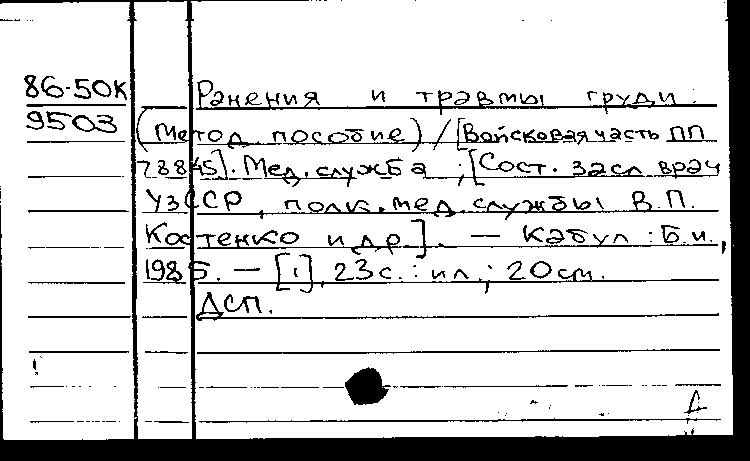 86-50К
9503
Ранения и травмы груди :
(Метод. пособие) / [Войсковая часть ПП
78845]. Мед. служба ; [Сост. засл. врач
УзССР, полк. мед. службы В.П.
Костенко и др.]. — Кабул : Б.и.,
1985. — [1], 23 с. : ил. ; 20 см.
ДСП.